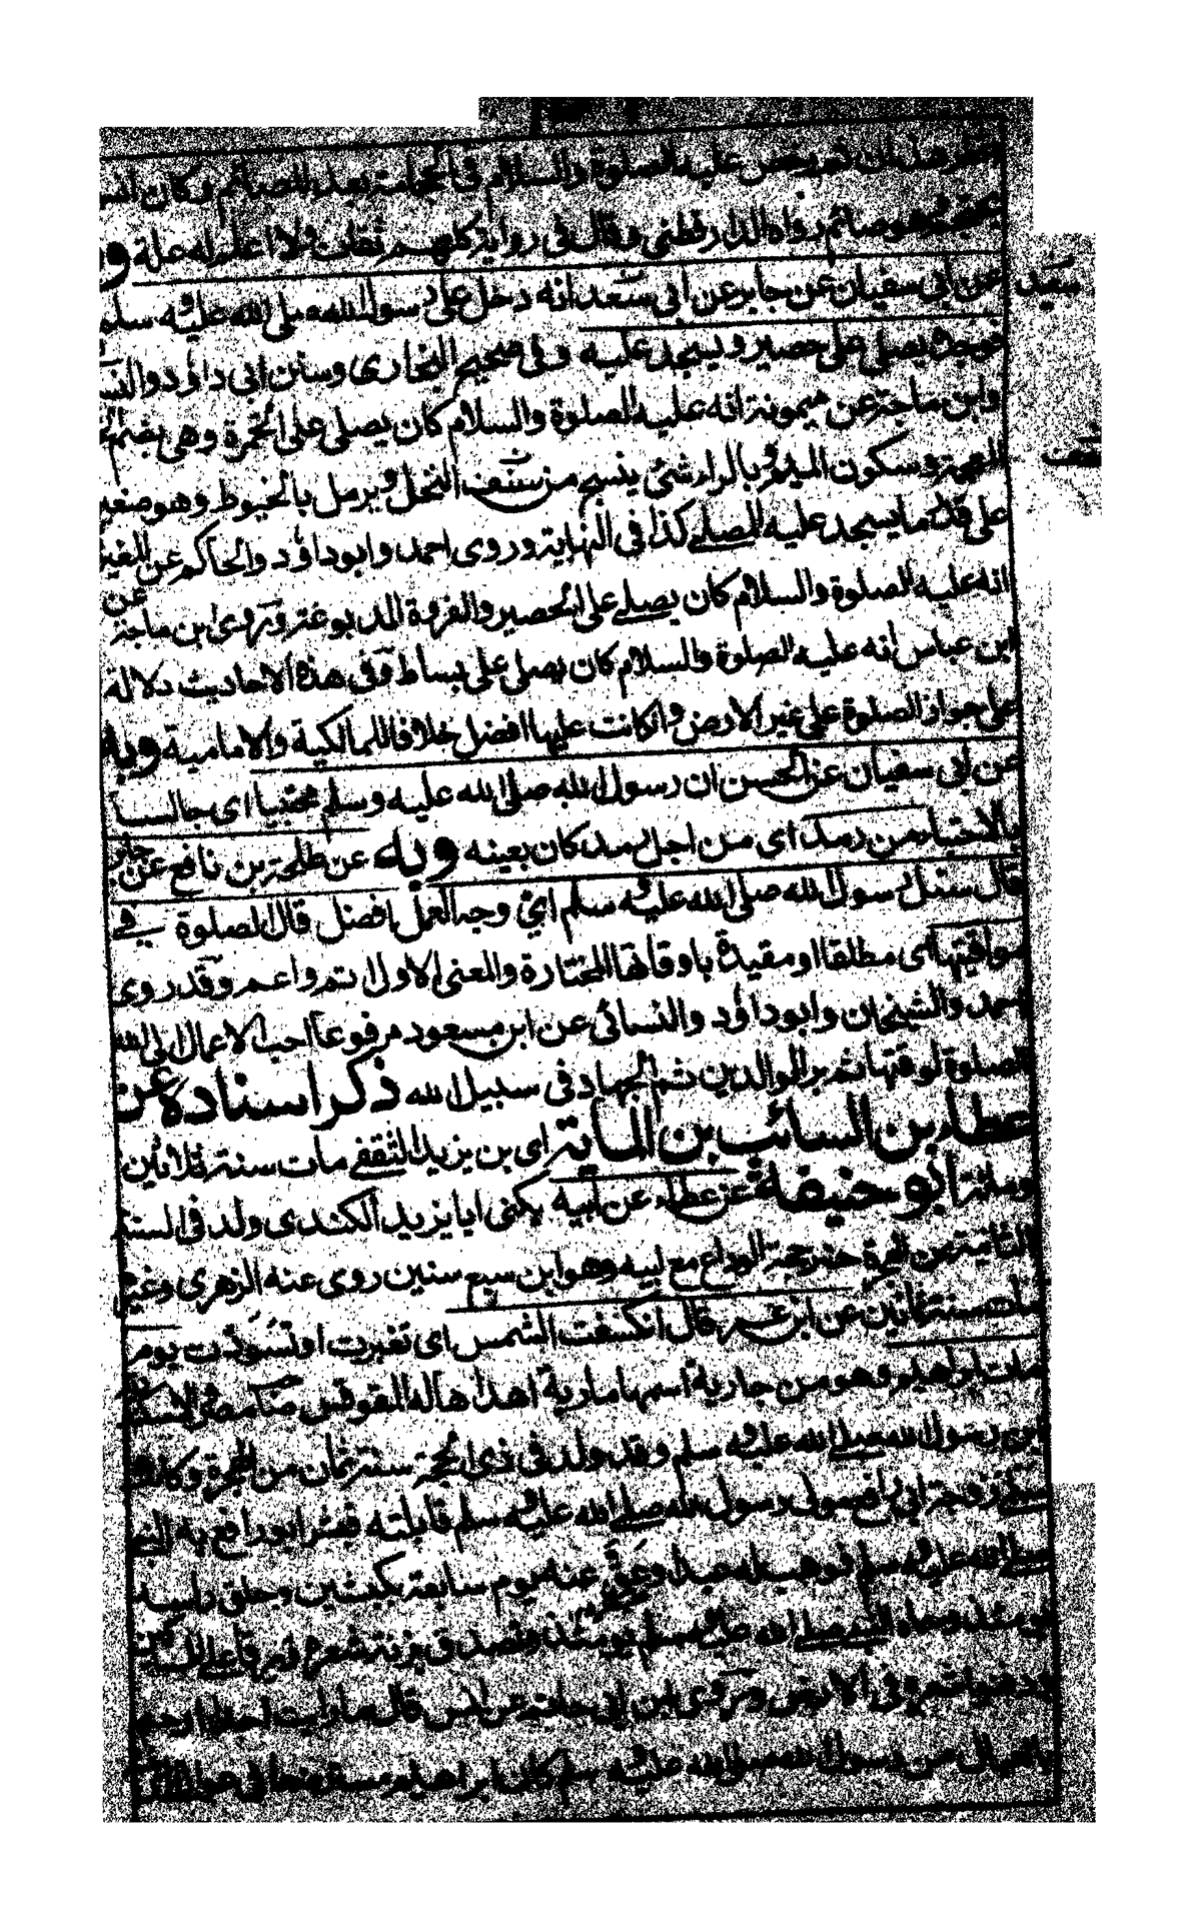 ثم رخص عليه الصلوة والسلام فى الحجامة بعد للصائم وكان انس
وهو صائم رواه الدارقطنى وقال فى رواية كلهم ثقات ولا اعلم له علة و
عن ابى سفيان عن جابر عن ابى سعد انه دخل على رسول الله صلى الله عليه وسلم
سعيد
فوجده يصلى على حصير ويسجد عليه وفى صحيح البخارى وسنن ابى داؤد والنس
وابن ماجة عن ميمونة انه عليه الصلوة والسلام كان يصلى على الخمرة وهى بضم
المعجمة وسكون الميم وبالراء شئ ينسج من سقف النخل ويرمل بالخيوط وهو صغير
على قدر ما يسجد عليه المصلے كذا فى النهاية وروى احمد وابوداؤد والحاكم عن المغير
انه عليه الصلوة والسلام كان يصلے على الحصير والفروة المدبوغة وروى ابن ماجة عن
ابن عباس انه عليه الصلوة والسلام كان يصلى على بساط وفى هذه الاحاديث دلالة
على جواز الصلوة على غير الارض وان كانت عليها افضل خلافا للمالكية والامامية وبه
عن ابى سفيان عن الحسن ان رسول الله صلى الله عليه وسلم محتبيا اى جالسا
بالاحتباء من رمد اى من اجل رمد كان بعينه وبه عن طلحة بن نافع عن جابر
قال سئل رسول الله صلى الله عليه وسلم اى وجه العمل افضل قال الصلوة فے
مواقيتها اى مطلقا او مقيدة باوقاتها المختارة والمعنى الاول اتم واعم وقد روى
احمد والشيخان وابوداؤد والنسائى عن ابن مسعود مرفوعا احب الاعمال الى الله
الصلوة لوقتها ثم بر الوالدين ثم الجهاد فى سبيل الله ذكر اسناده عن
عطاء بن السائب بن المابة اى بن يزيد الثقفے مات سنة ثلاثين
ومائة ابو حنيفة عن عطاء عن ابيه يكنى ابا يزيد الكندى ولد فى السنة
الثامنة من الهجرة حجة الوداع مع ابيه وهو ابن سبع سنين روى عنه الزهرى وغير
مات سنة ثمانين عن ابن عمر قال انكسفت الشمس اى تغيرت او تسودت يوم
مات ابراهيم وهو من جارية اسمها مارية اهداها له المقوقس
ابن رسول الله صلے الله عليه وسلم وقد ولد فى ذى الحجة سنة ثمان من الهجرة وكانت
سلمے زوجة ابى رافع مولى رسول الله صلے الله عليه وسلم قابلته فبشر ابو رافع به النبے
صلے الله عليه وسلم فوهب له عبدا وعق عنه يوم سابعة بكبشين وحلق راسه
يومئذ وسماه النبے صلے الله عليه وسلم يومئذ وتصدق بزنة شعره
فى الارض وروى ابن ابى حاتم عن انس قال ما رايت احدا ارحم
بالعيال من رسول الله صلى الله عليه وسلم كان ابراهيم مسترضعا فى